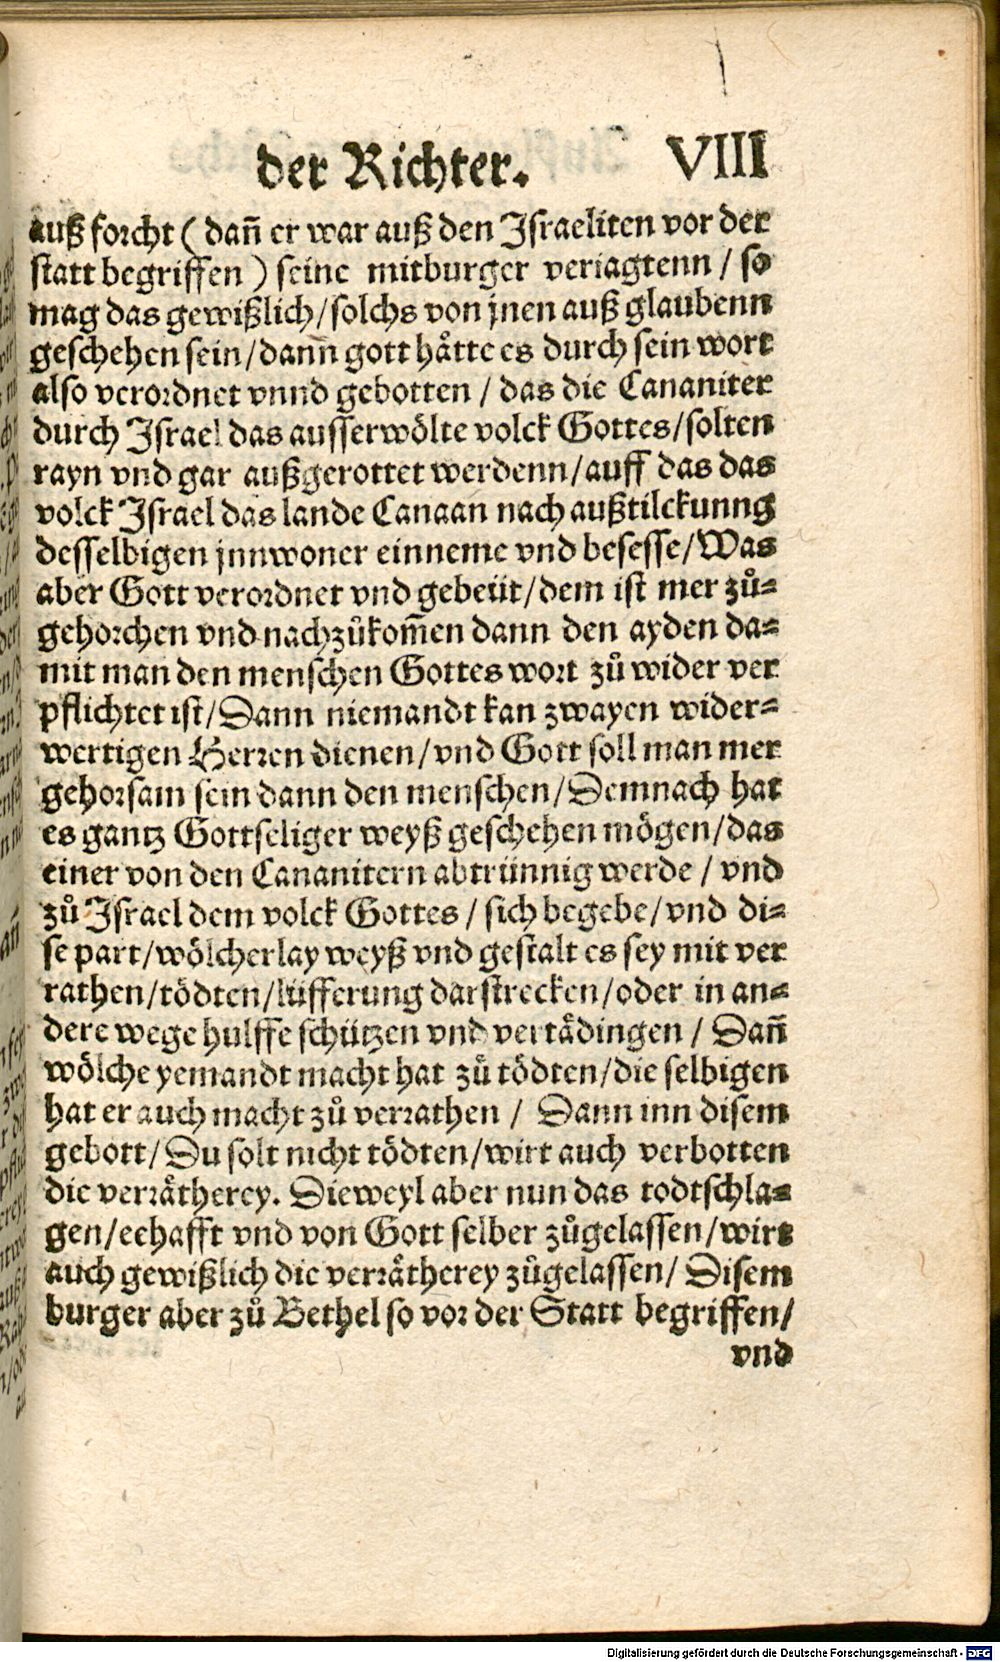 der Richter. VIII
auß forcht ( dañ er war auß den Israeliten vor der
statt begriffen ) seine mitburger veriagtenn / so
mag das gewißlich / solchs von jnen auß glaubenn
geschehen sein / dañn gott håtte es durch sein wort
also verordnet vnnd gebotten / das die Cananiter
durch Israel das ausserwölte volck Gottes / solten
rayn vnd gar außgerottet werdenn / auff das das
volck Israel das lande Canaan nach außtilckunng
desselbigen jnnwoner einneme vnd besesse / Was
aber Gott verordnet vnd gebeüt / dem ist mer zů=
gehorchen vnd nachzůkom̃en dann den ayden da=
mit man den menschen Gottes wort zů wider ver
pflichtet ist / Dann niemandt kan zwayen wider=
wertigen Herren dienen / vnd Gott soll man mer
gehorsam sein dann den menschen / Demnach hat
es gantz Gottseliger weyß geschehen mögen / das
einer von den Cananitern abtrünnig werde / vnd
zů Israel dem volck Gottes / sich begebe / vnd di=
se part / wölcherlay weyß vnd gestalt es sey mit ver
rathen / tödten / lüfferung darstrecken / oder in an=
dere wege hulffe schützen vnd vertådingen / Dañ
wölche yemandt macht hat zů tödten / die selbigen
hat er auch macht zů verrathen / Dann inn disem
gebott / Du solt nicht tödten / wirt auch verbotten
die verråtherey. Dieweyl aber nun das todtschla=
gen / eehafft vnd von Gott selber zůgelassen / wirt
auch gewißlich die verråtherey zůgelassen / Disem
burger aber zů Bethel so vor der Statt begriffen /
vnd
Digitalisierung gefördert durch die Deutsche Forschungsgemeinschaft - DFG